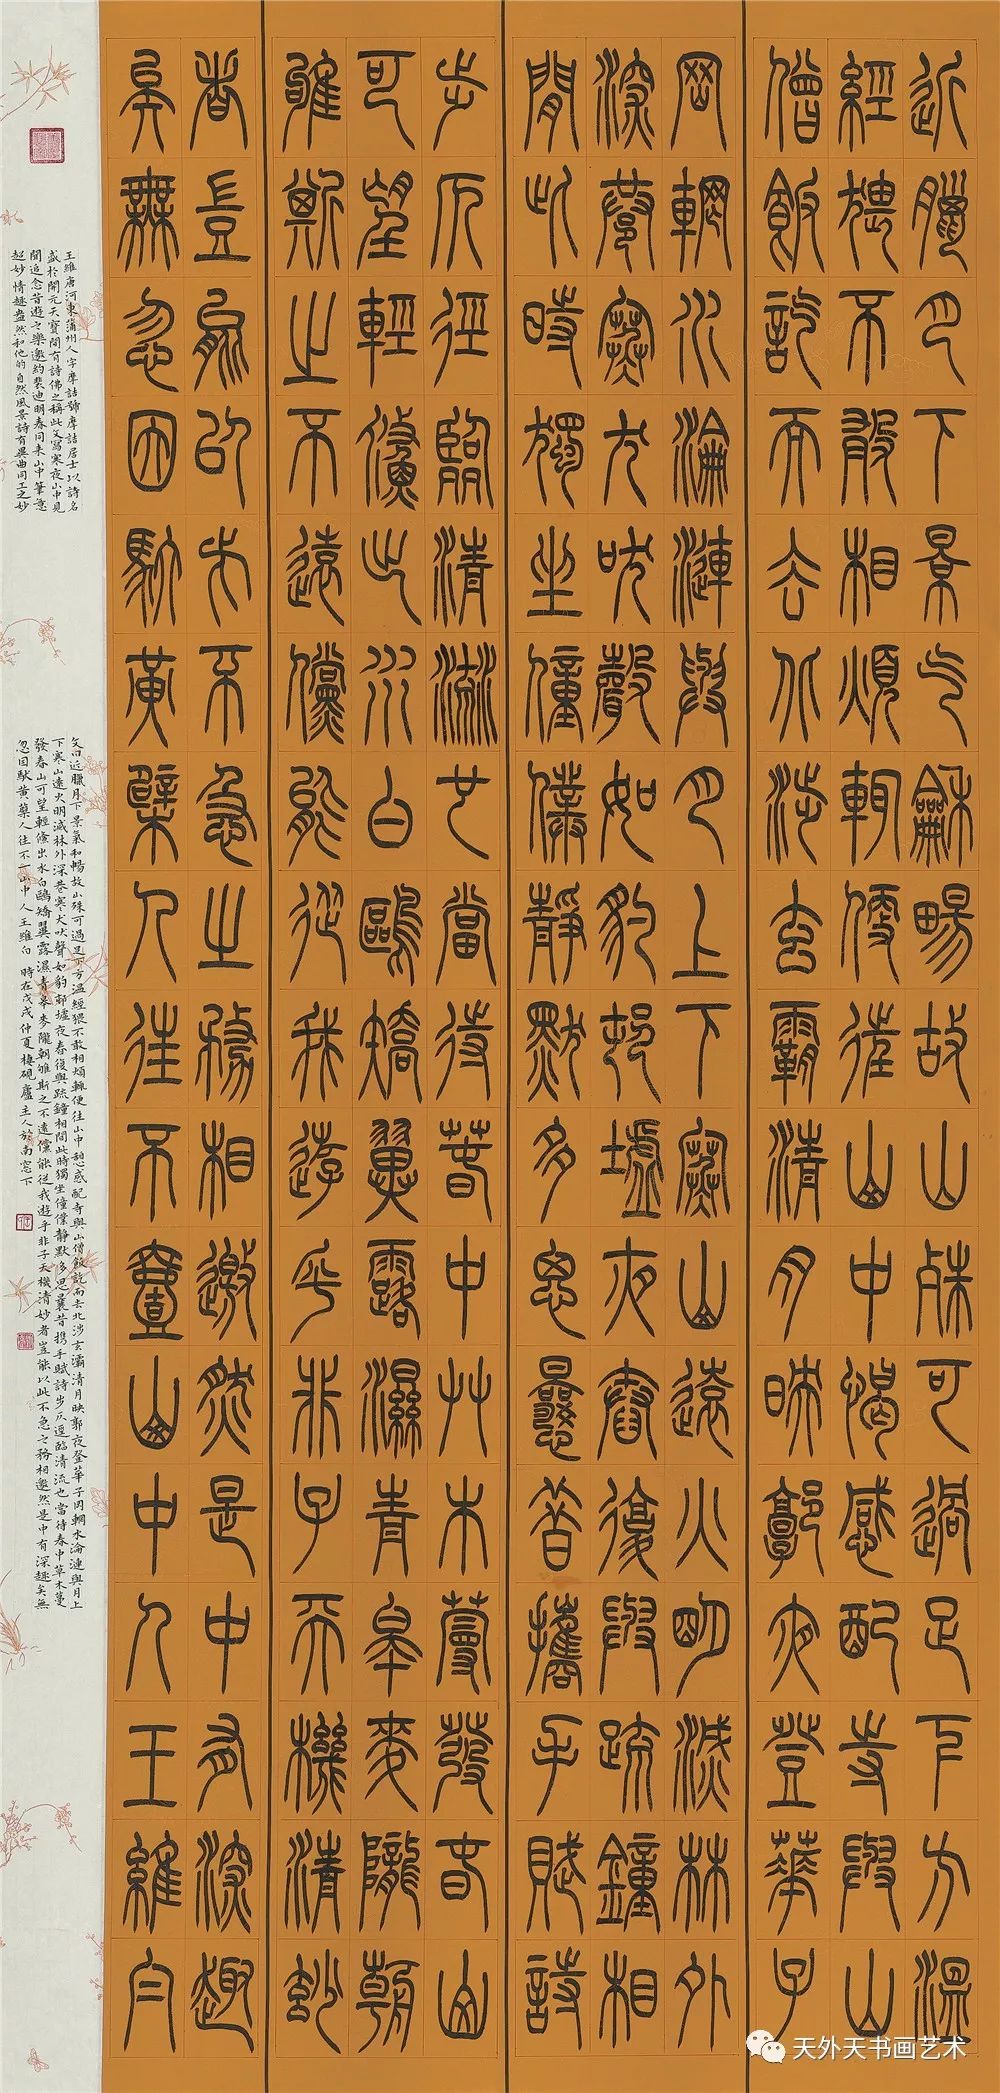 近臘月下景气龢畼故山殊可過足下方溫
經猥不敢相煩輒便往山中憩感配寺與山
僧飯訖而去北涉玄灞清月映郭夜登華子
岡輞水淪漣與月上下寒山遠火明滅林外
深巷寒犬吠聲如豹邨墟夜舂復與疏鐘相
閒此時獨坐僮僕靜默多思曩昔攜手賦詩
步仄徑臨清流也當待春中艸木蔓發春山
可望輕儵出水白鷗矯翼露濕青皋麥隴朝
雊斯之不遠儻能從我遊乎非子天機清妙
者豈能以此不急之務相邀然是中有深趣
矣無忽因馱黃檗人往不壹山中人王維白
王維唐河東蒲州人字摩詰號摩詰居士以詩名
盛於開元天寶間有詩佛之稱此文寫寒夜山中見
聞追念昔遊之樂邀約裴迪明春同來山中筆意
超妙情趣盎然和他的自然風景詩有異曲同工之妙
文曰近臘月下景氣和暢故山殊可過足下方溫經猥不敢相煩輒便往山中憩感配寺與山僧飯訖而去北涉玄灞清月映郭夜登華子岡輞水淪漣與月上
下寒山遠火明滅林外深巷寒犬吠聲如豹邨墟夜舂復與疏鐘相間此時獨坐僮僕靜默多思曩昔携手賦詩步仄逕臨清流也當待春中草木蔓
發春山可望輕儵出水白鷗矯翼露濕青皋麥隴朝雊斯之不遠儻能從我遊乎非子天機清妙者豈能以此不急之務相邀然是中有深趣矣無
忽因馱黃蘗人往不一山中人王維白 時在戊戌仲夏棲硯廬主人於南窗下
天外天书画艺术